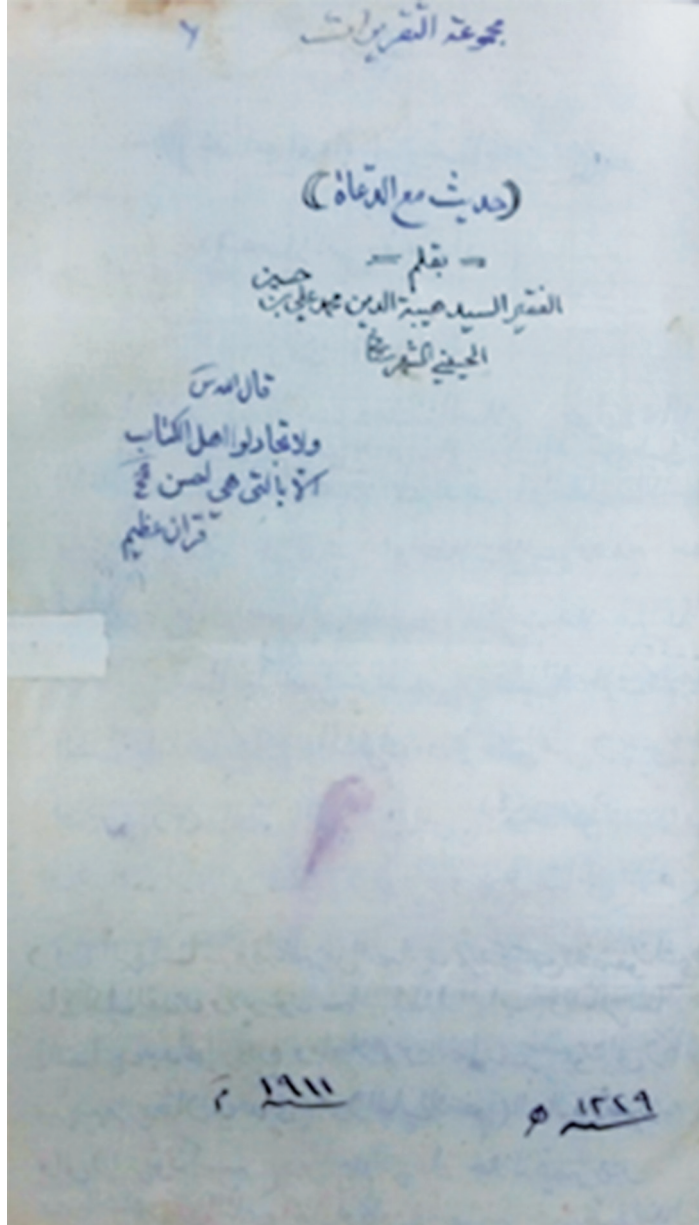 مجموعة التقريرات ٦
(حديث مع الدعاة)
= بقلم =
الفقير السيد هبة الدين محمد علي بن حسين
الحسيني الشهرستاني
قال الله س
ولا تجادلوا اهل الكتاب
الا بالتي هي احسن
قران عظيم
سنة ١٣٢٩ ه
سنة ١٩١١ م